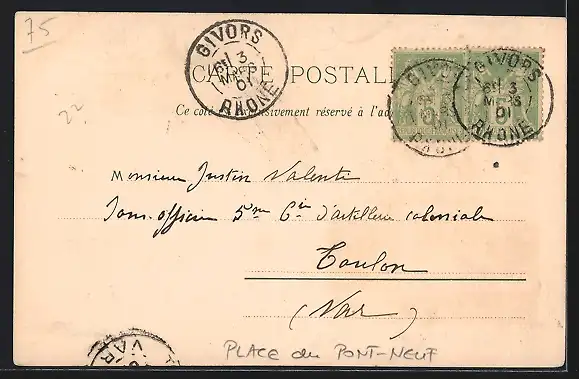 75
GIVORS
6E 3
MARS
01
RHONE
CARTE POSTALE
Ce côté exclusivement réservé à l'ad
GIVORS
RHONE
GIVORS
6E 3
MARS
01
RHONE
22
Monsieur Justin Valente
Sous-officier 5me Cie d'artillerie coloniale
Toulon
(Var)
VAR
PLACE du PONT-NEUF